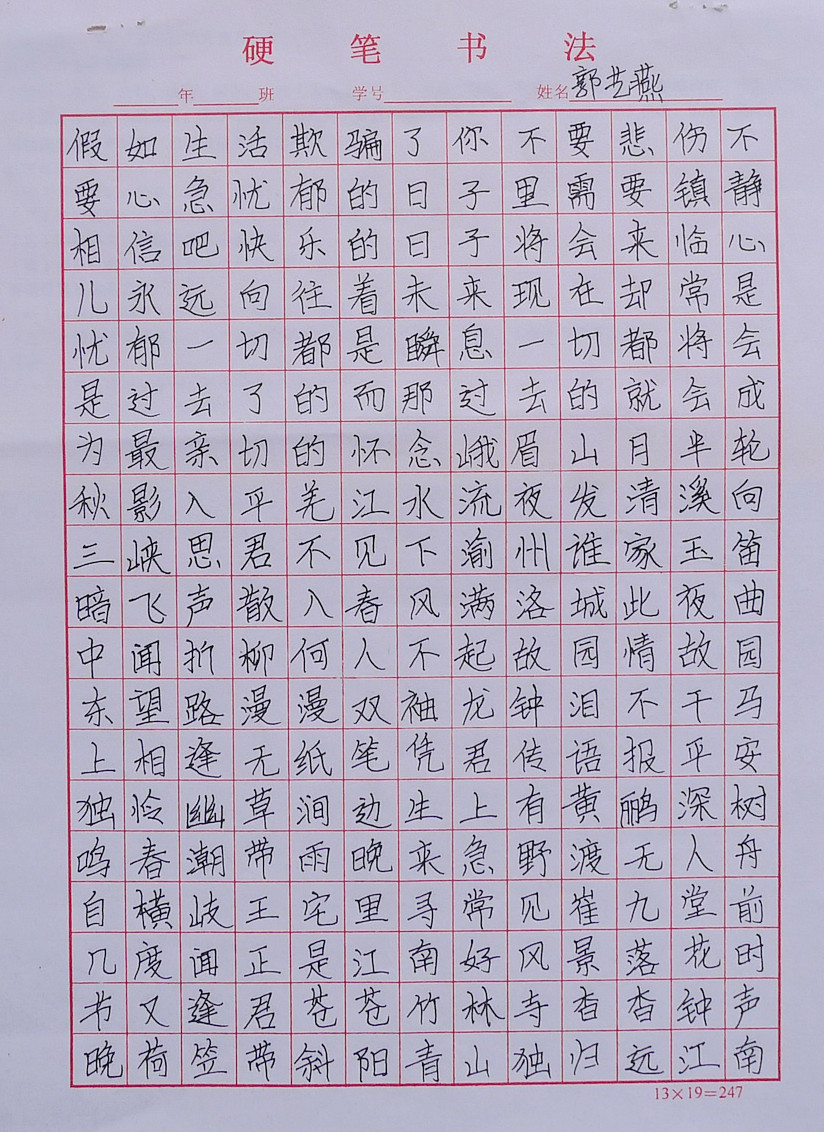 硬笔书法
年 班 学号 姓名 郭艺燕
假如生活欺骗了你不要悲伤不
要心急忧郁的日子里需要镇静
相信吧快乐的日子将会来临心
儿永远向往着未来现在却常是
忧郁一切都是瞬息一切都将会
是过去了的而那过去的就会成
为最亲切的怀念峨眉山月半轮
秋影入平羌江水流夜发清溪向
三峡思君不见下渝州谁家玉笛
暗飞声散入春风满洛城此夜曲
中闻折柳何人不起故园情故园
东望路漫漫双袖龙钟泪不干马
上相逢无纸笔凭君传语报平安
独怜幽草涧边生上有黄鹂深树
鸣春潮带雨晚来急野渡无人舟
自横岐王宅里寻常见崔九堂前
几度闻正是江南好风景落花时
书又逢君苍苍竹林寺杳杳钟声
晚荷笠带斜阳青山独归远江南
13×19=247